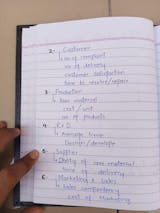 2- Customer
no of complaint
no of delivery
customer satisfaction
time to resolve/repair
3- Production
Raw material
cost / unit
no of products
4- R & D
Average time
Design / develope
5- Supplier
Quality of raw material
time of delivery
6- Marketing & sales
Sales
cost of Marketing